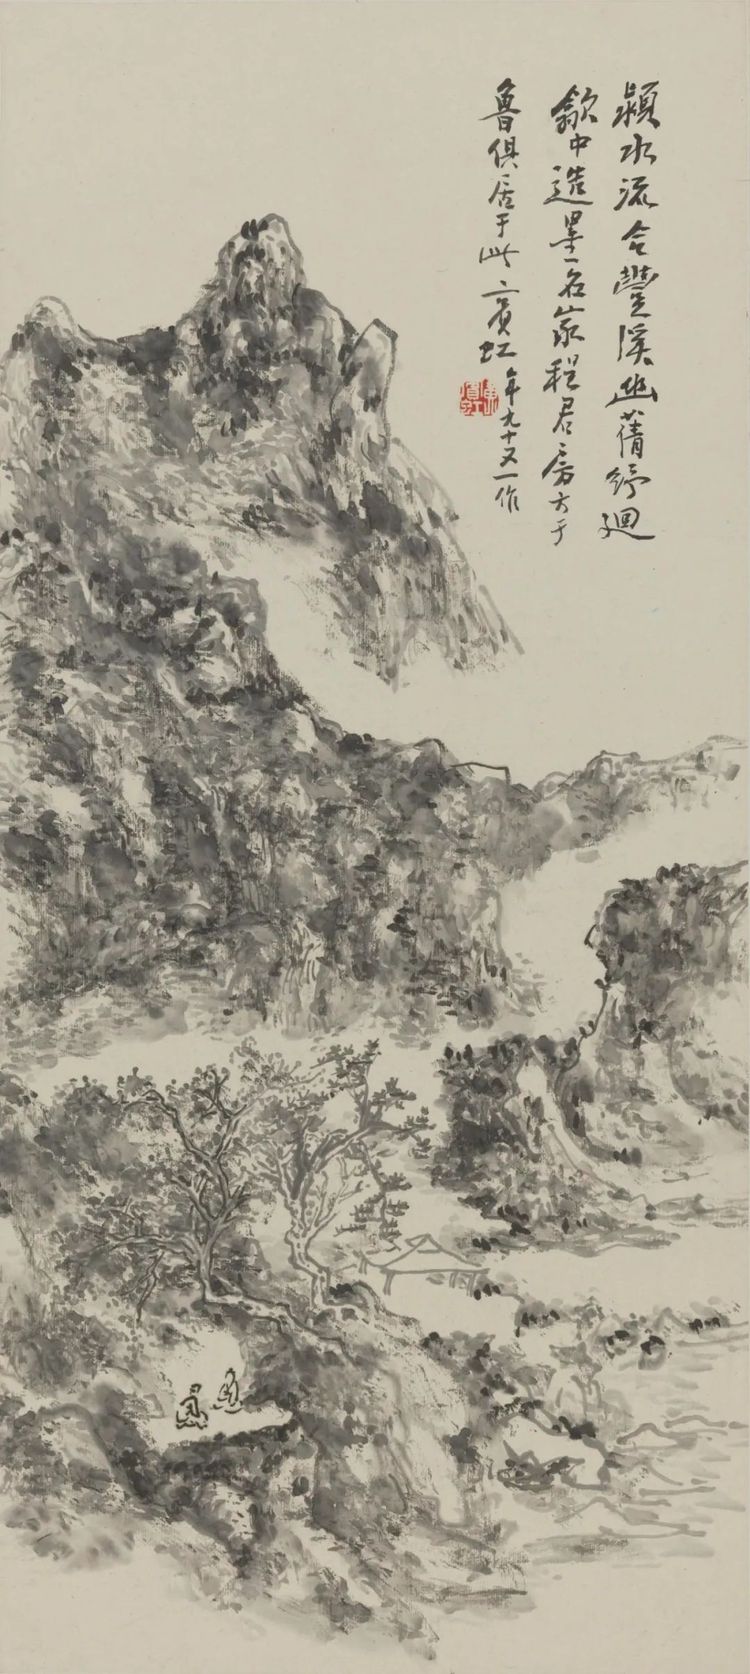 潁水流合豐溪幽蒨紆迴
歙中造墨名家程君房方于
魯俱居于此 賓虹年九十又一作